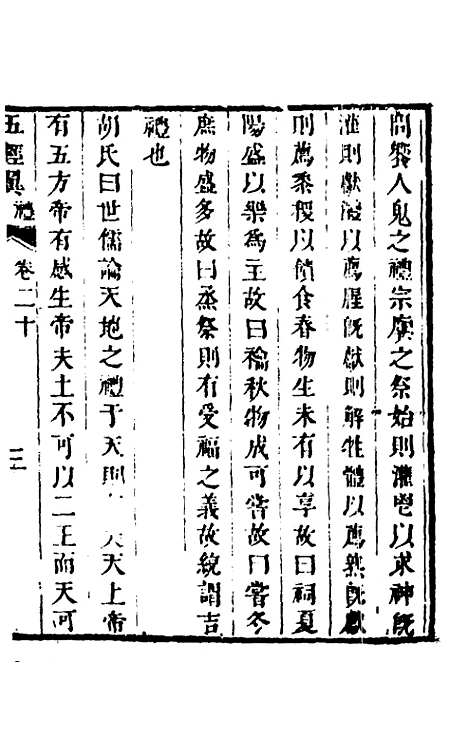 問饗人鬼之禮宗廟之祭始則灌鬯以求神旣
灌則獻酒以薦腥旣獻則解牲體以薦熟旣獻
則薦黍稷以饋食春物生未有以享故曰祠夏
陽盛以樂爲主故曰禴秋物成可嘗故曰嘗冬
庶物盛多故曰烝祭則有受福之義故統謂吉
禮也
胡氏曰世儒論天地之禮于天則 天上帝
有五方帝有感生帝夫土不可以二王而天可
五經 禮 卷二十 三